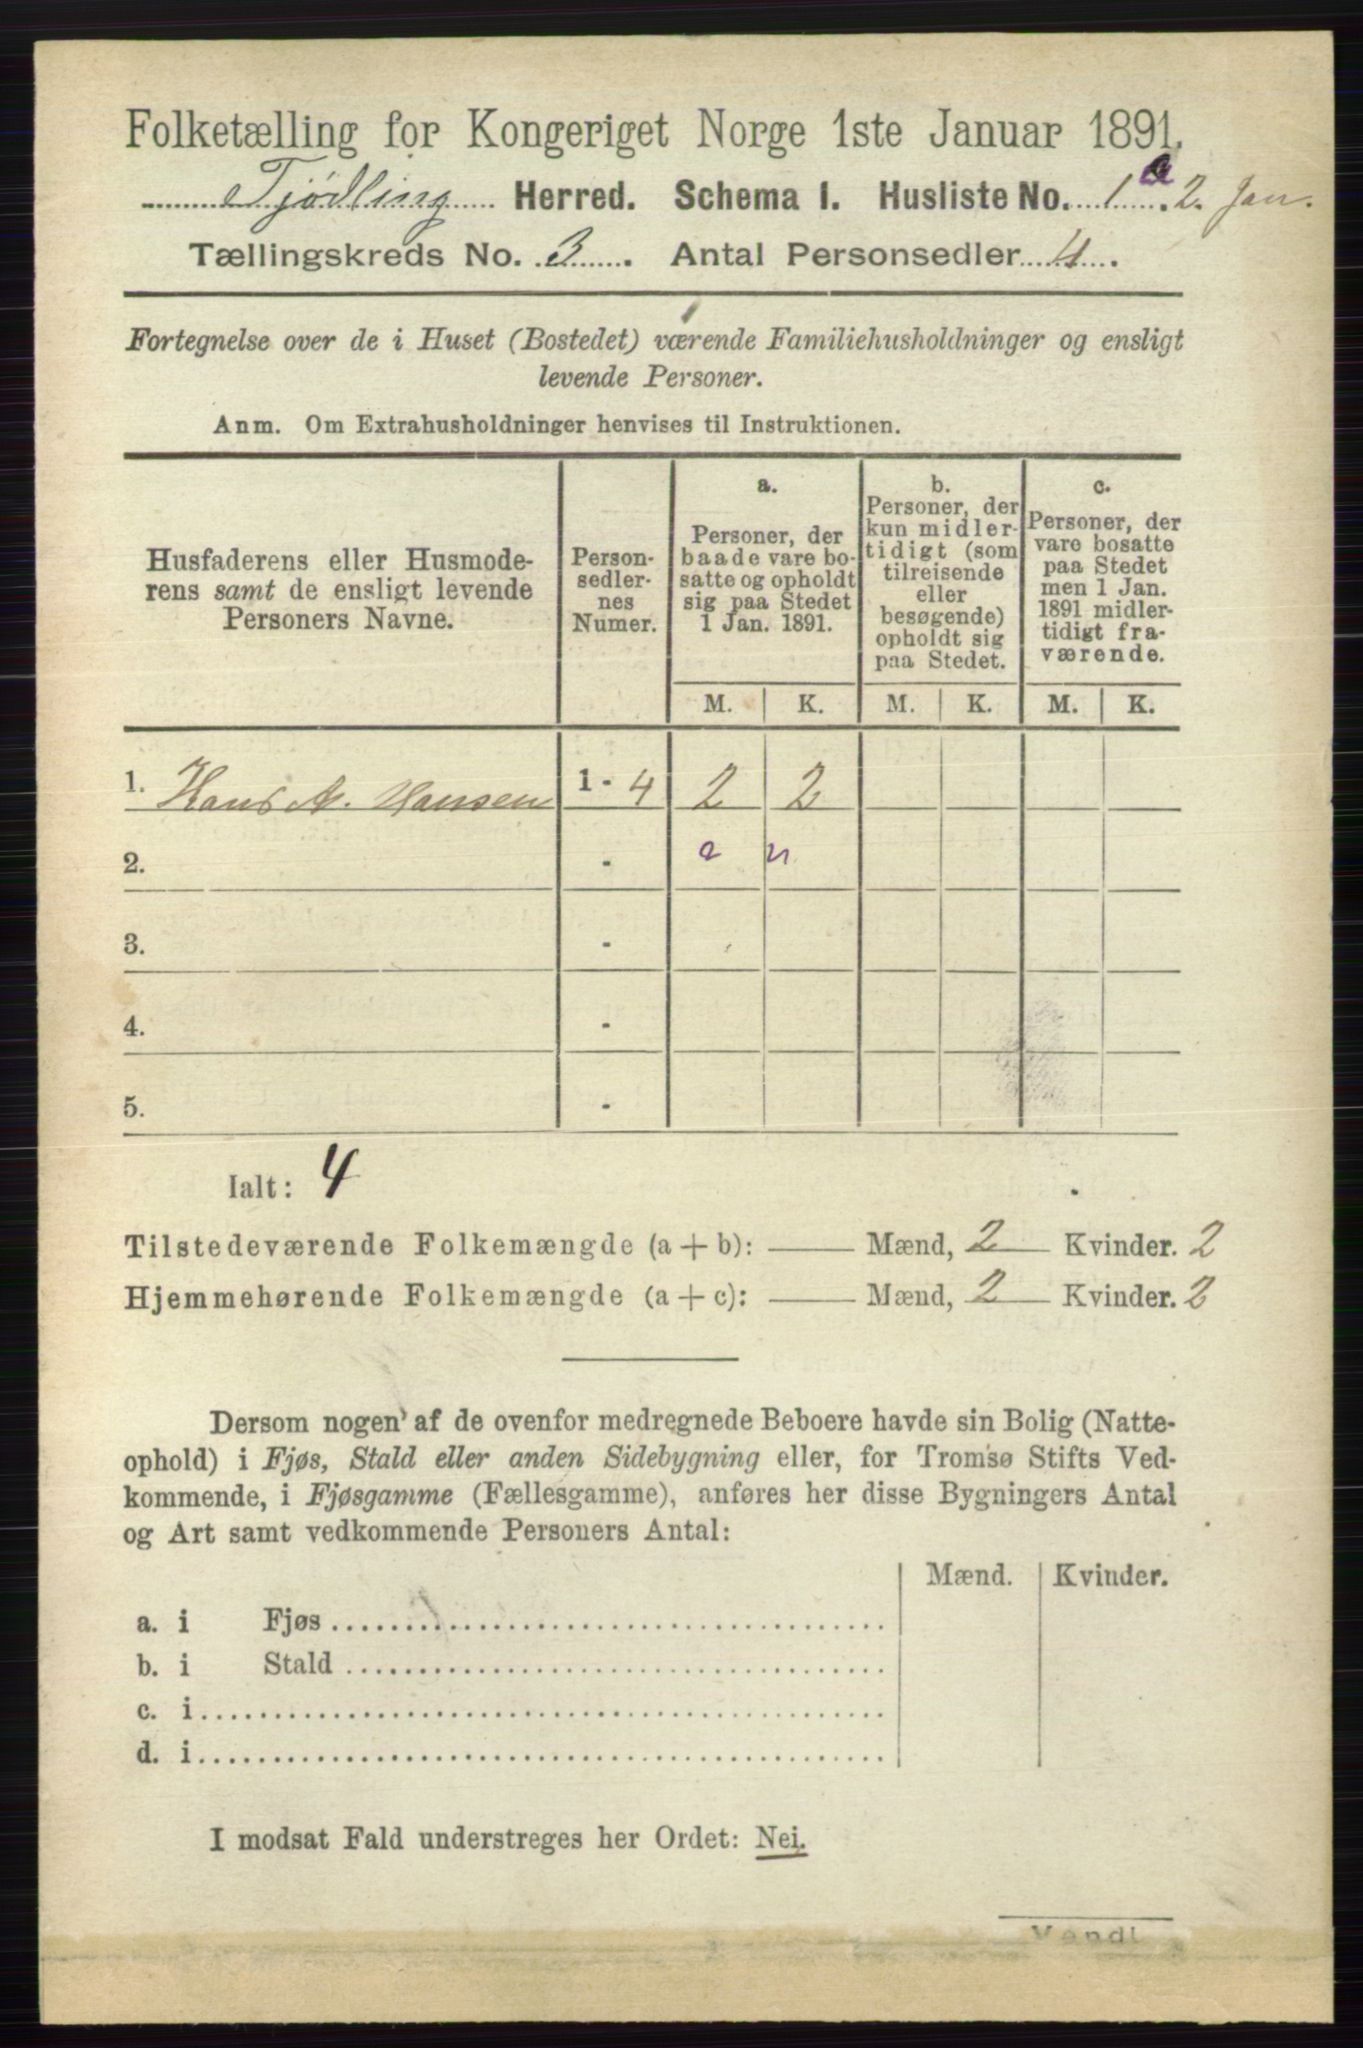 Folketælling for Kongeriget Norge 1ste Januar 1891.
Tjødling Herred. Schema I. Husliste No. 1 a 2. Jan.
Tællingskreds No. 3. Antal Personsedler 4.
Fortegnelse over de i Huset (Bostedet) værende Familiehusholdninger og ensligt
levende Personer.
Anm. Om Extrahusholdninger henvises til Instruktionen.
Husfaderens eller Husmode-
rens samt de ensligt levende
Personers Navne.
Person-
sedler-
nes
Numer.
a.
Personer, der
baade vare bo-
satte og opholdt
sig paa Stedet
1 Jan. 1891.
b.
Personer, der
kun midler-
tidigt (som
tilreisende
eller
besøgende)
opholdt sig
paa Stedet.
c.
Personer, der
vare bosatte
paa Stedet
men 1 Jan.
1891 midler-
tidigt fra-
værende.
M. K. M. K. M. K.
1. Hans A. Hansen 1 - 4 2 2
2. -
3. -
4. -
5. -
Ialt: 4
Tilstedeværende Folkemængde (a + b): Mænd, 2 Kvinder. 2
Hjemmehørende Folkemængde (a + c): Mænd, 2 Kvinder. 2
Dersom nogen af de ovenfor medregnede Beboere havde sin Bolig (Natte-
ophold) i Fjøs, Stald eller anden Sidebygning eller, for Tromsø Stifts Ved-
kommende, i Fjøsgamme (Fællesgamme), anføres her disse Bygningers Antal
og Art samt vedkommende Personers Antal:
Mænd. Kvinder.
a. i Fjøs
b. i Stald
c. i
d. i
I modsat Fald understreges her Ordet: Nei.
Vend!